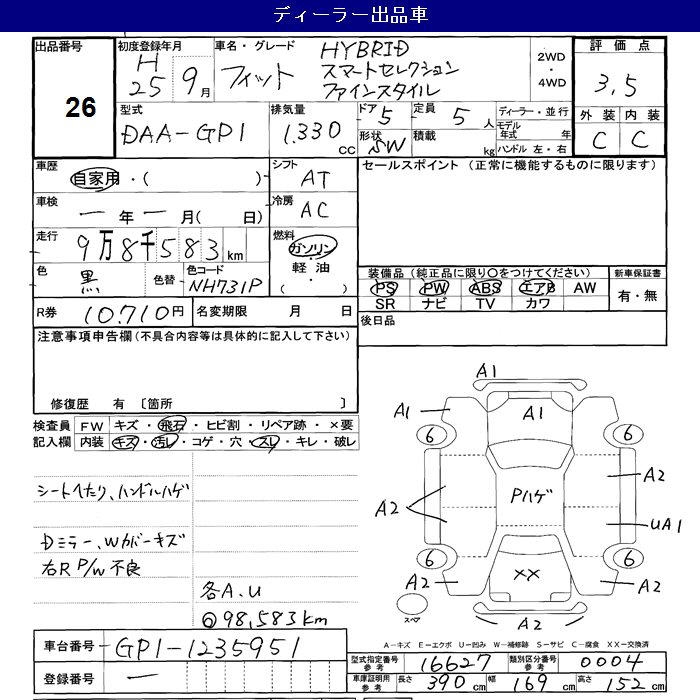 ディーラー出品車
出品番号 26
初度登録年月 H25 9月
車名・グレード フィット HYBRID スマートセレクション ファインスタイル
2WD・4WD
評価点 3.5
外装 C 内装 C
型式 DAA-GP1
排気量 1.330 cc
ドア 5 定員 5人
形状 SW 積載 kg
ディーラー・並行
モデル年式 年
ハンドル 左・右
車歴 自家用・( )
シフト AT
セールスポイント (正常に機能するものに限ります)
車検 一年一月( 日)
冷房 AC
走行 9万8千583km
燃料 ガソリン・軽油・( )
色 黒 色替 色コード NH731P
装備品 (純正品に限り○をつけてください) 新車保証書
PS PW ABS エアB AW 有・無
SR ナビ TV カワ
R券 10.710円 名変期限 月 日
後日品
注意事項申告欄 (不具合内容等は具体的に記入して下さい)
修復歴 有 〔箇所 〕
検査員記入欄
FW キズ・飛石・ヒビ割・リペア跡・×要
内装 キズ・汚レ・コゲ・穴・スレ・キレ・破レ
シートへたり、ハンドルハゲ
Dミラー、Wカバーキズ
右R P/W 不良
各A.U
@98,583km
A1
A1 A1 A1
6 6
A2
A2 Pハゲ
UA1
6 6
A2 XX A2
スペア A2
A−キズ E−エクボ U−凹み W−補修跡 S−サビ C−腐食 XX−交換済
車台番号 GP1-1235951
登録番号 一
型式指定番号参考 16627 類別区分番号参考 0004
車庫証明用参考 長さ 390cm 幅 169cm 高さ 152cm